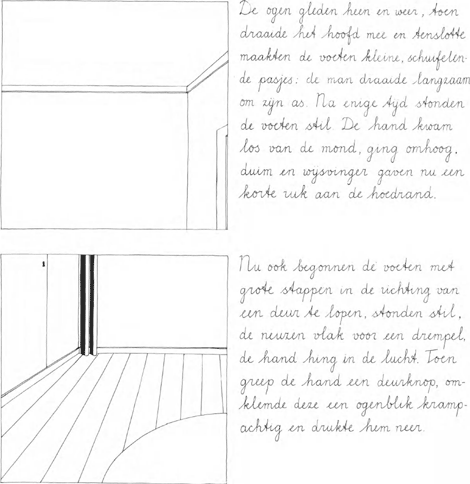 De ogen gleden heen en weer, toen
draaide het hoofd mee en tenslotte
maakten de voeten kleine, schuifelen-
de pasjes: de man draaide langzaam
om zijn as. Na enige tijd stonden
de voeten stil. De hand kwam
los van de mond, ging omhoog,
duim en wijsvinger gaven nu een
korte ruk aan de hoedrand.
Nu ook begonnen de voeten met
grote stappen in de richting van
een deur te lopen, stonden stil,
de neuzen vlak voor een drempel,
de hand hing in de lucht. Toen
greep de hand een deurknop, om-
klemde deze een ogenblik kramp-
achtig en drukte hem neer.